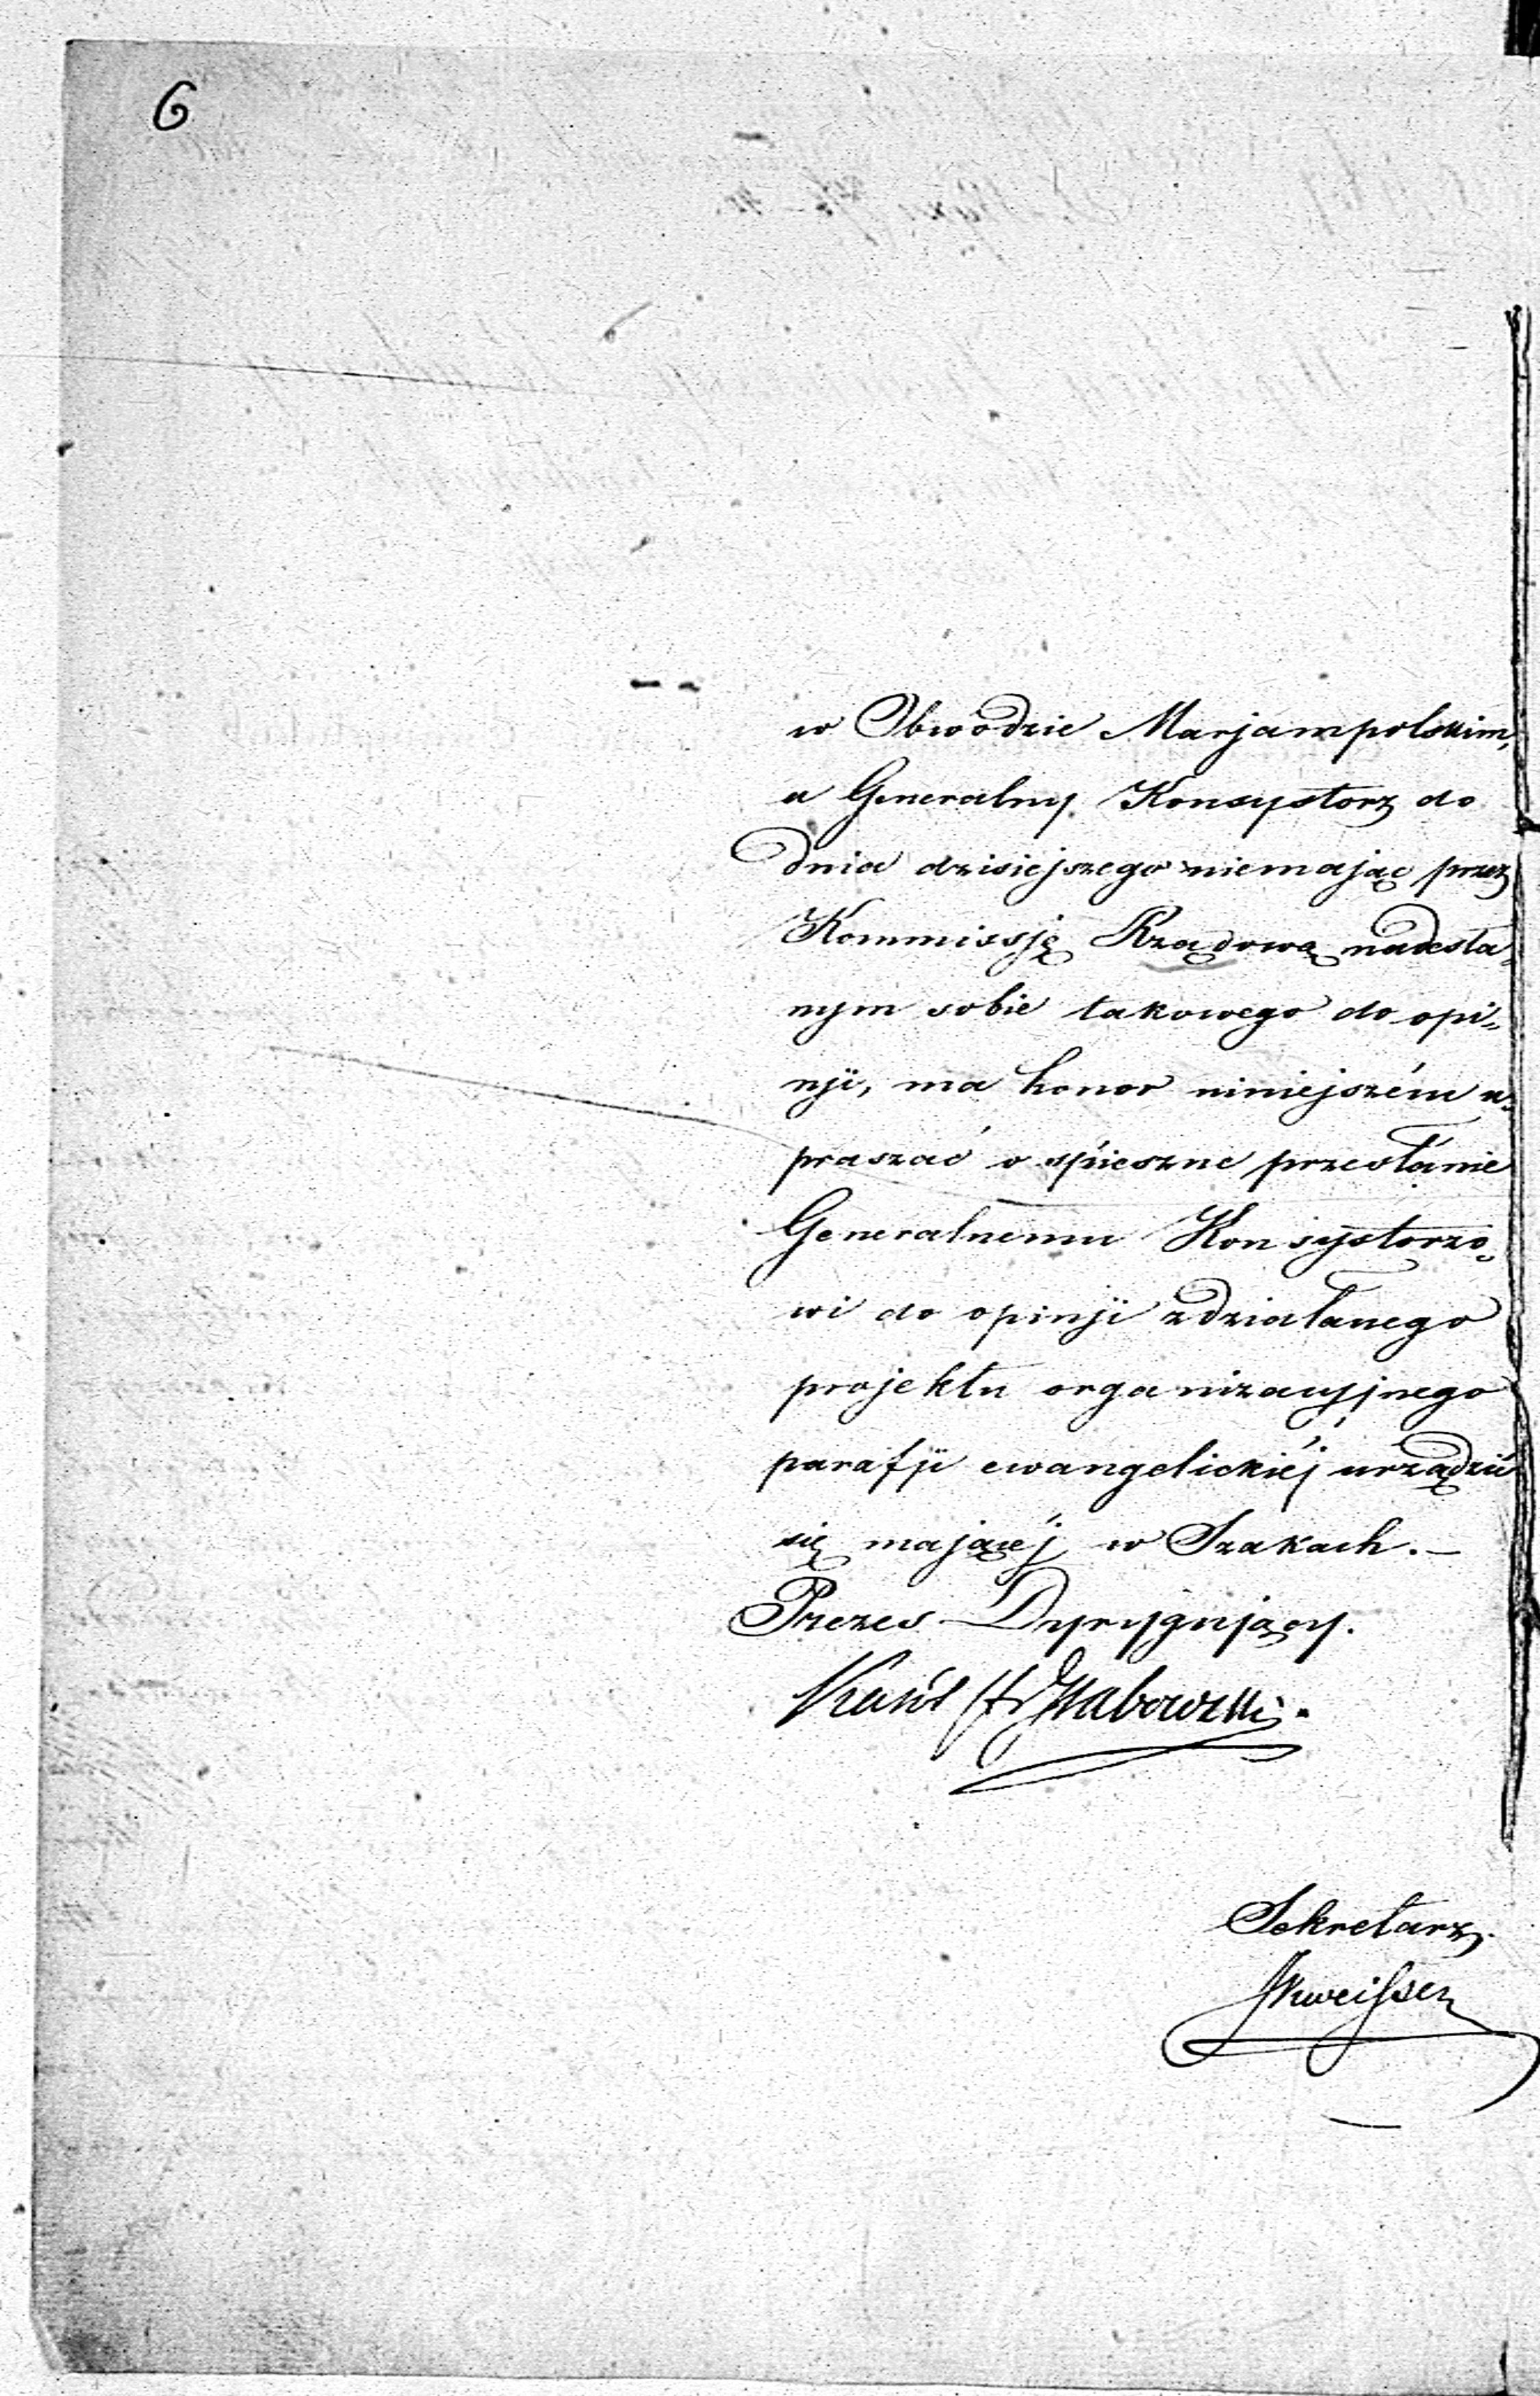 6
w Obwodzie Marjampolskim,
a Generalny Konsystorz do
dnia dzisiejszego niemając przez
Kommissję Rządową nadesła„
nym sobie takowego do opi„
nji, ma honor niniejszém u„
praszać o spieszne przesłanie
Generalnemu Konsystorzo„
wi do opinji zdziałanego
projektu organizacyjnego
parafji ewangelickiéj urządzić
się mającéj w Szakach.—
Prezes Dyrygujący.
Karól Hr Grabowski.
Sekretarz